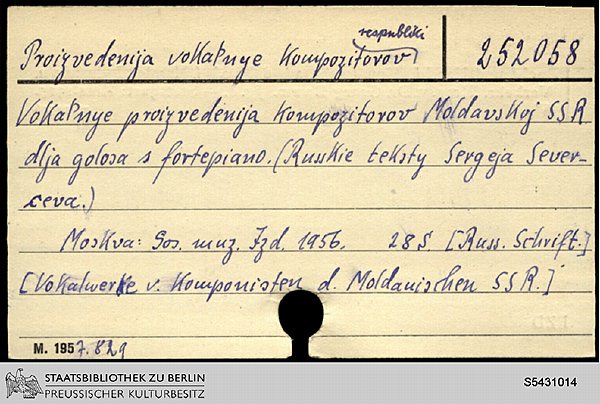 Proizvedenija vokal'nye kompozitorov respubliki
252058
Vokal'nye proizvedenija kompozitorov Moldavskoj SSR
dlja golosa s fortepiano. (Russkie teksty Sergeja Sever-
ceva.)
Moskva: Gos. muz. Izd. 1956. 28 S. [Russ. Schrift.]
[Vokalwerke v. Komponisten d. Moldauischen SSR.]
M. 1957.829
STAATSBIBLIOTHEK ZU BERLIN
PREUSSISCHER KULTURBESITZ
S5431014